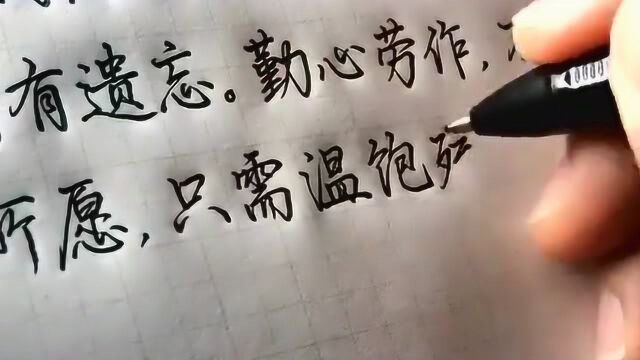 有遗忘。勤心劳作,
所愿,只需温饱